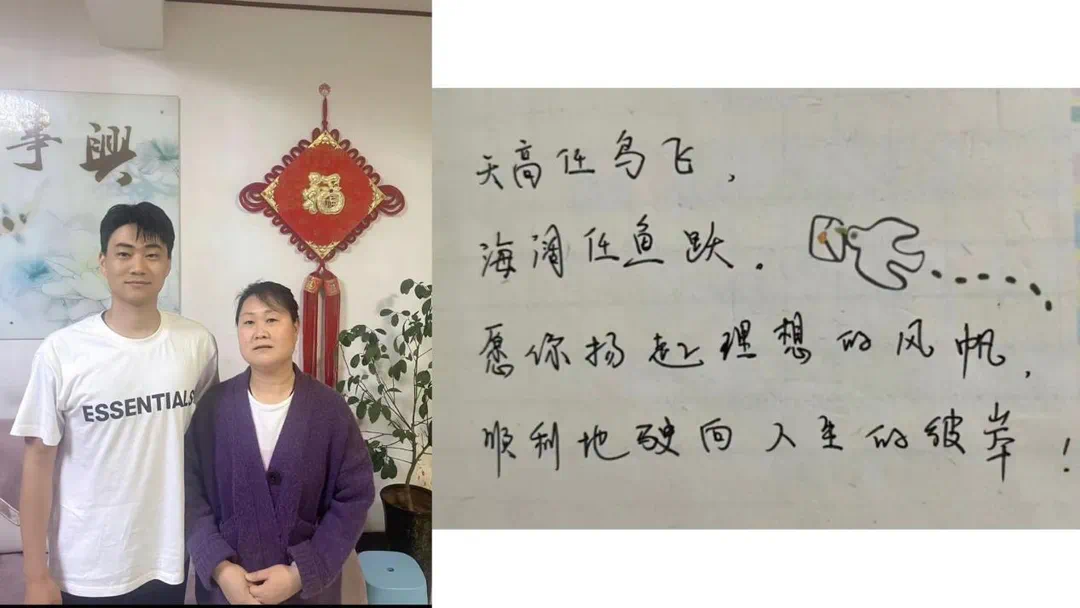 事興
福
ESSENTIALS
天高任鸟飞，
海阔任鱼跃．
愿你扬起理想的风帆，
顺利地驶向人生的彼岸！